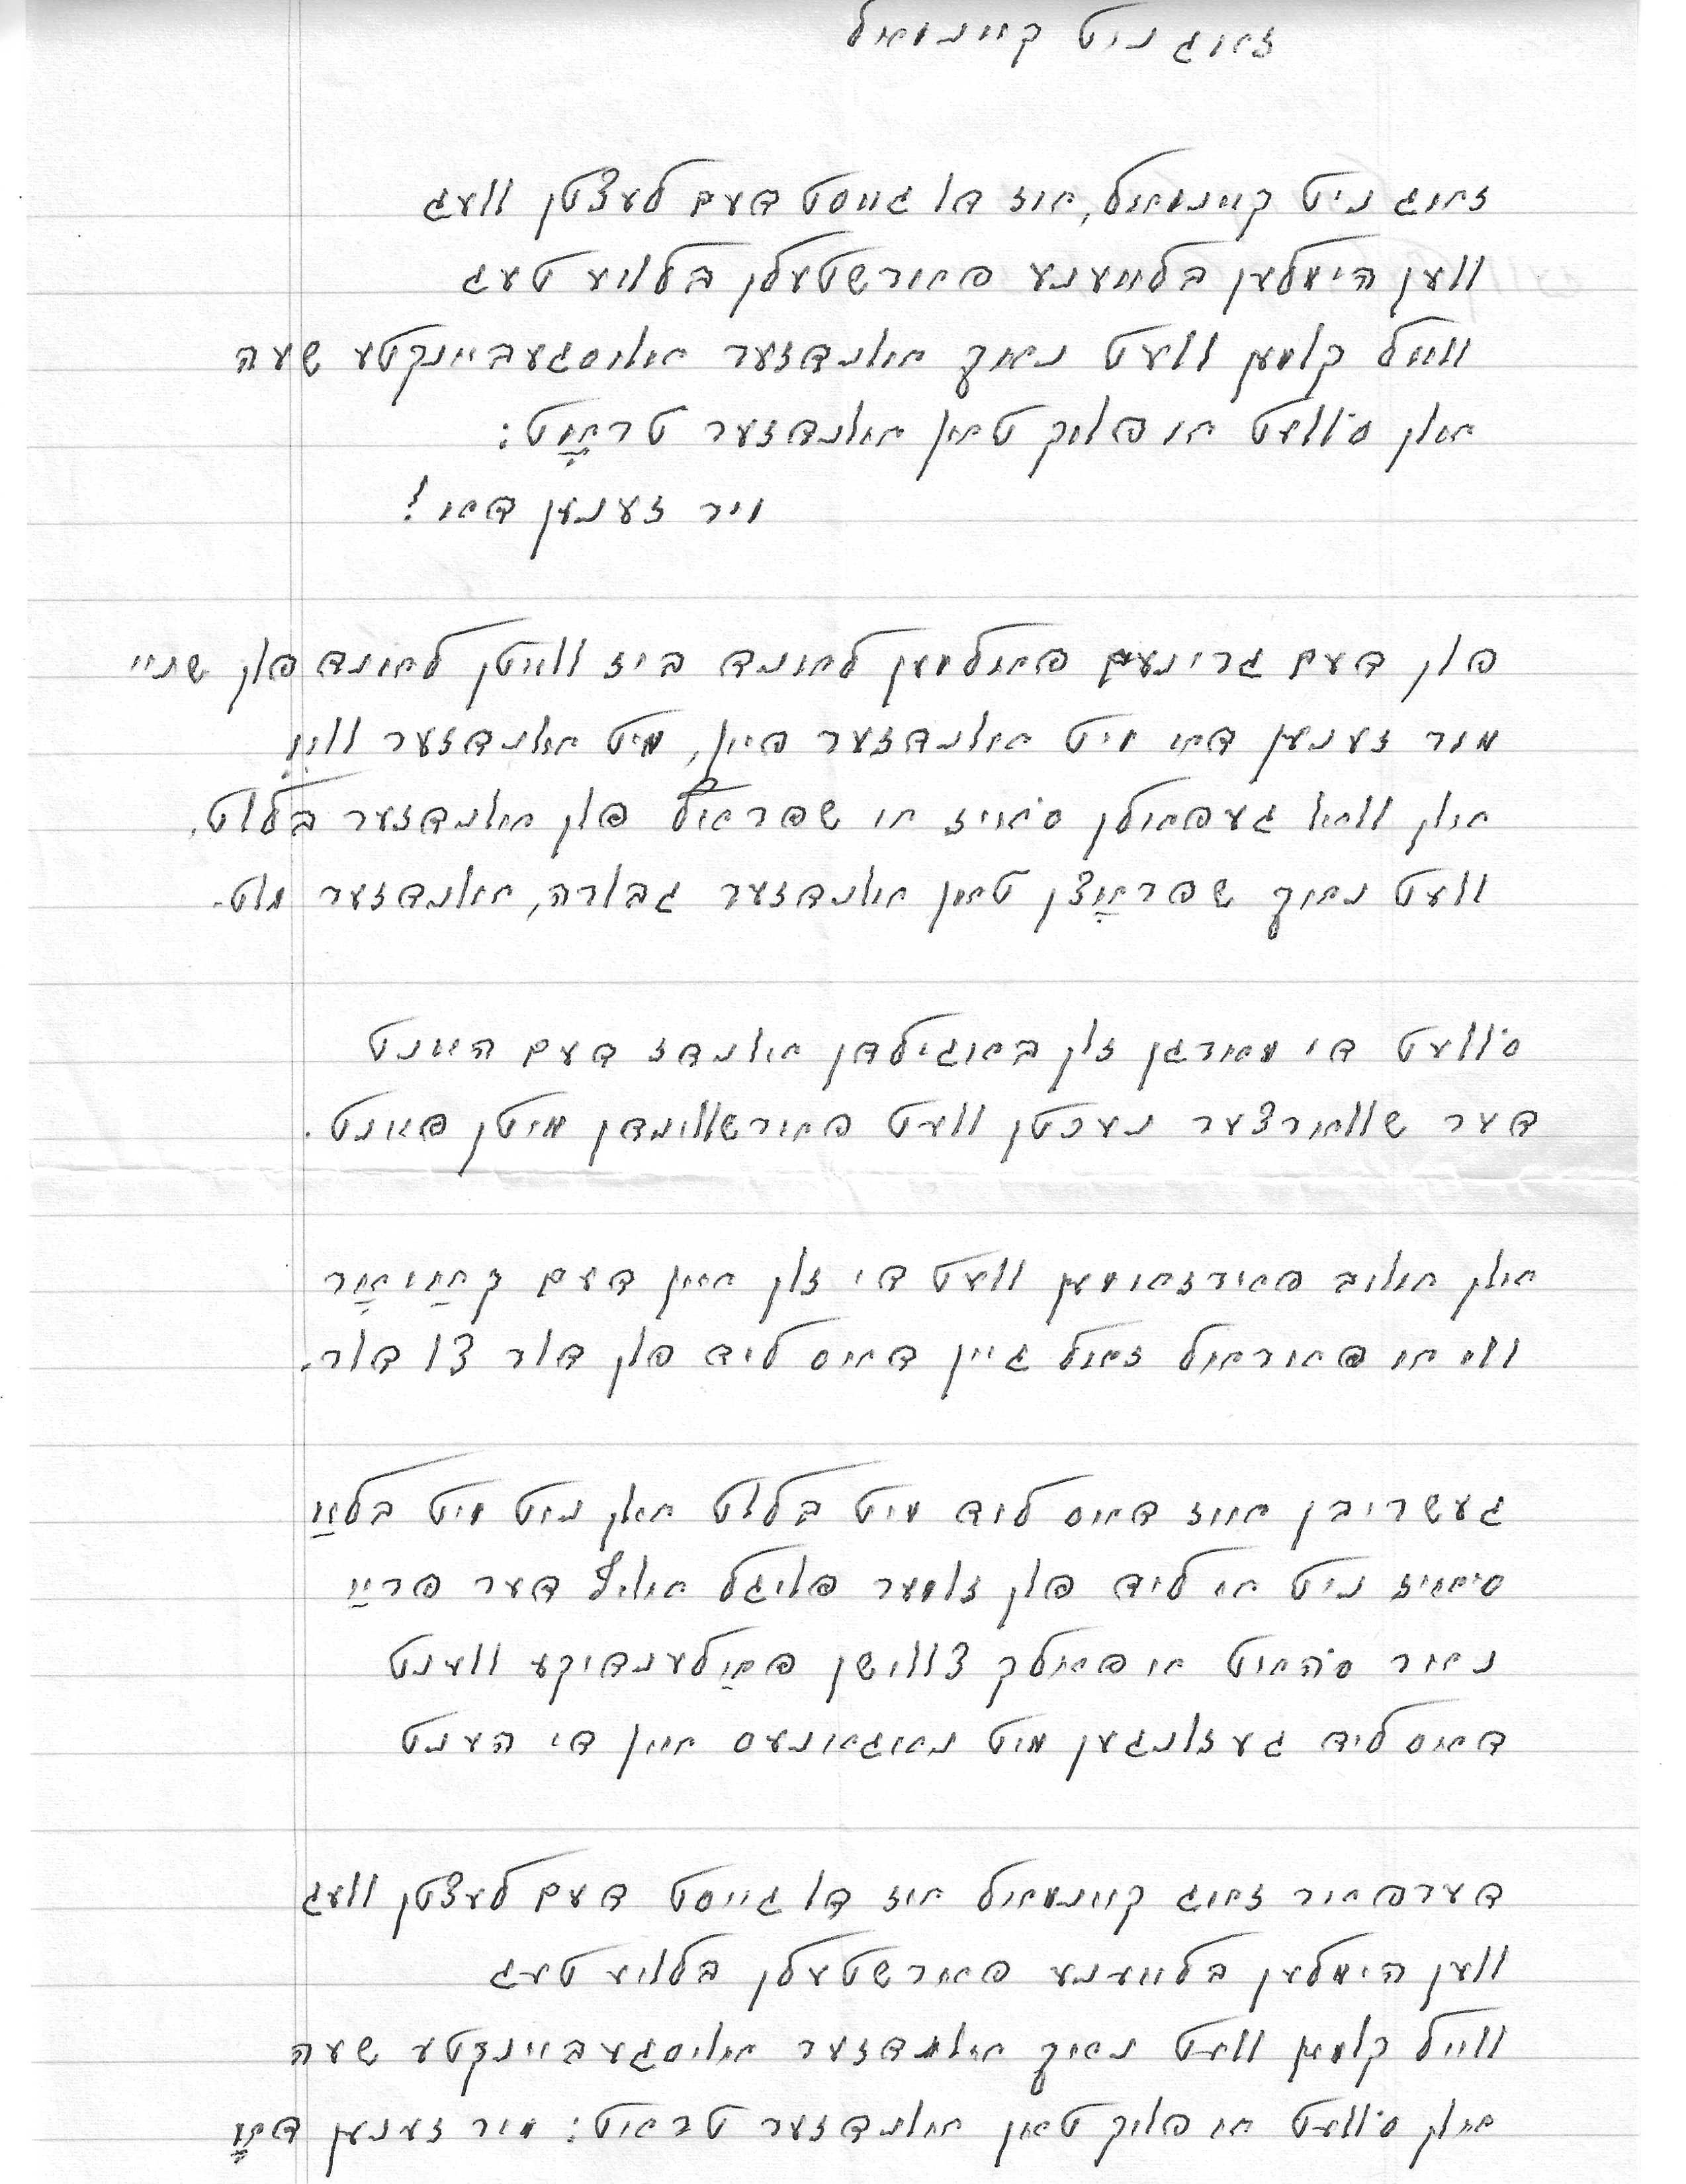 זאג ניט קיינמאל
זאג ניט קיינמאל, אז דו גייסט דעם לעצטן וועג
ווען הימלען בלייענע פארשטעלן בלויע טעג
ווייל קומען וועט נאך אונדזער אויסגעביינקטע שעה
און ס'וועט א פויק טאן אונדזער טראָט:
מיר זענען דא!
פון דעם גרינעם פאלמען לאנד ביז ווייטן לאנד פון שניי
מיר זענען דא מיט אונדזער פיין, מיט אונדזער וויי
און וואו געפאלן ס'איז א שפראץ פון אונדזער בלוט,
וועט נאך שפראָצן טאן אונדזער גבורה, אונדזער מוט.
ס'וועט די מארגן זון באגילדן אונדז דעם היינט
דער שווארצער נעכטן וועט פארשווינדן מיטן פיינט.
און אויב פארזאמען וועט די זון אין דעם קאַיאָר
ווי א פאראל זאל גיין דאס ליד פון דור צו דור.
געשריבן איז דאס ליד מיט בלוט און ניט מיט בלײַ
ס'איז ניט א ליד פון זומער פויגל אויף דער פרײַ
נאר ס'האט א פאלק צווישן פאַלענדיקע ווענט
דאס ליד געזונגען מיט נאגאנעס אין די הענט
דערפאר זאג קיינמאל אז דו גייסט דעם לעצטן וועג
ווען הימלען בלייענע פארשטעלן בלויע טעג
ווייל קומען וועט נאך אונדזער אויסגעביינקטע שעה
און ס'וועט א פויק טאן אונדזער טראט: מיר זענען דאָ